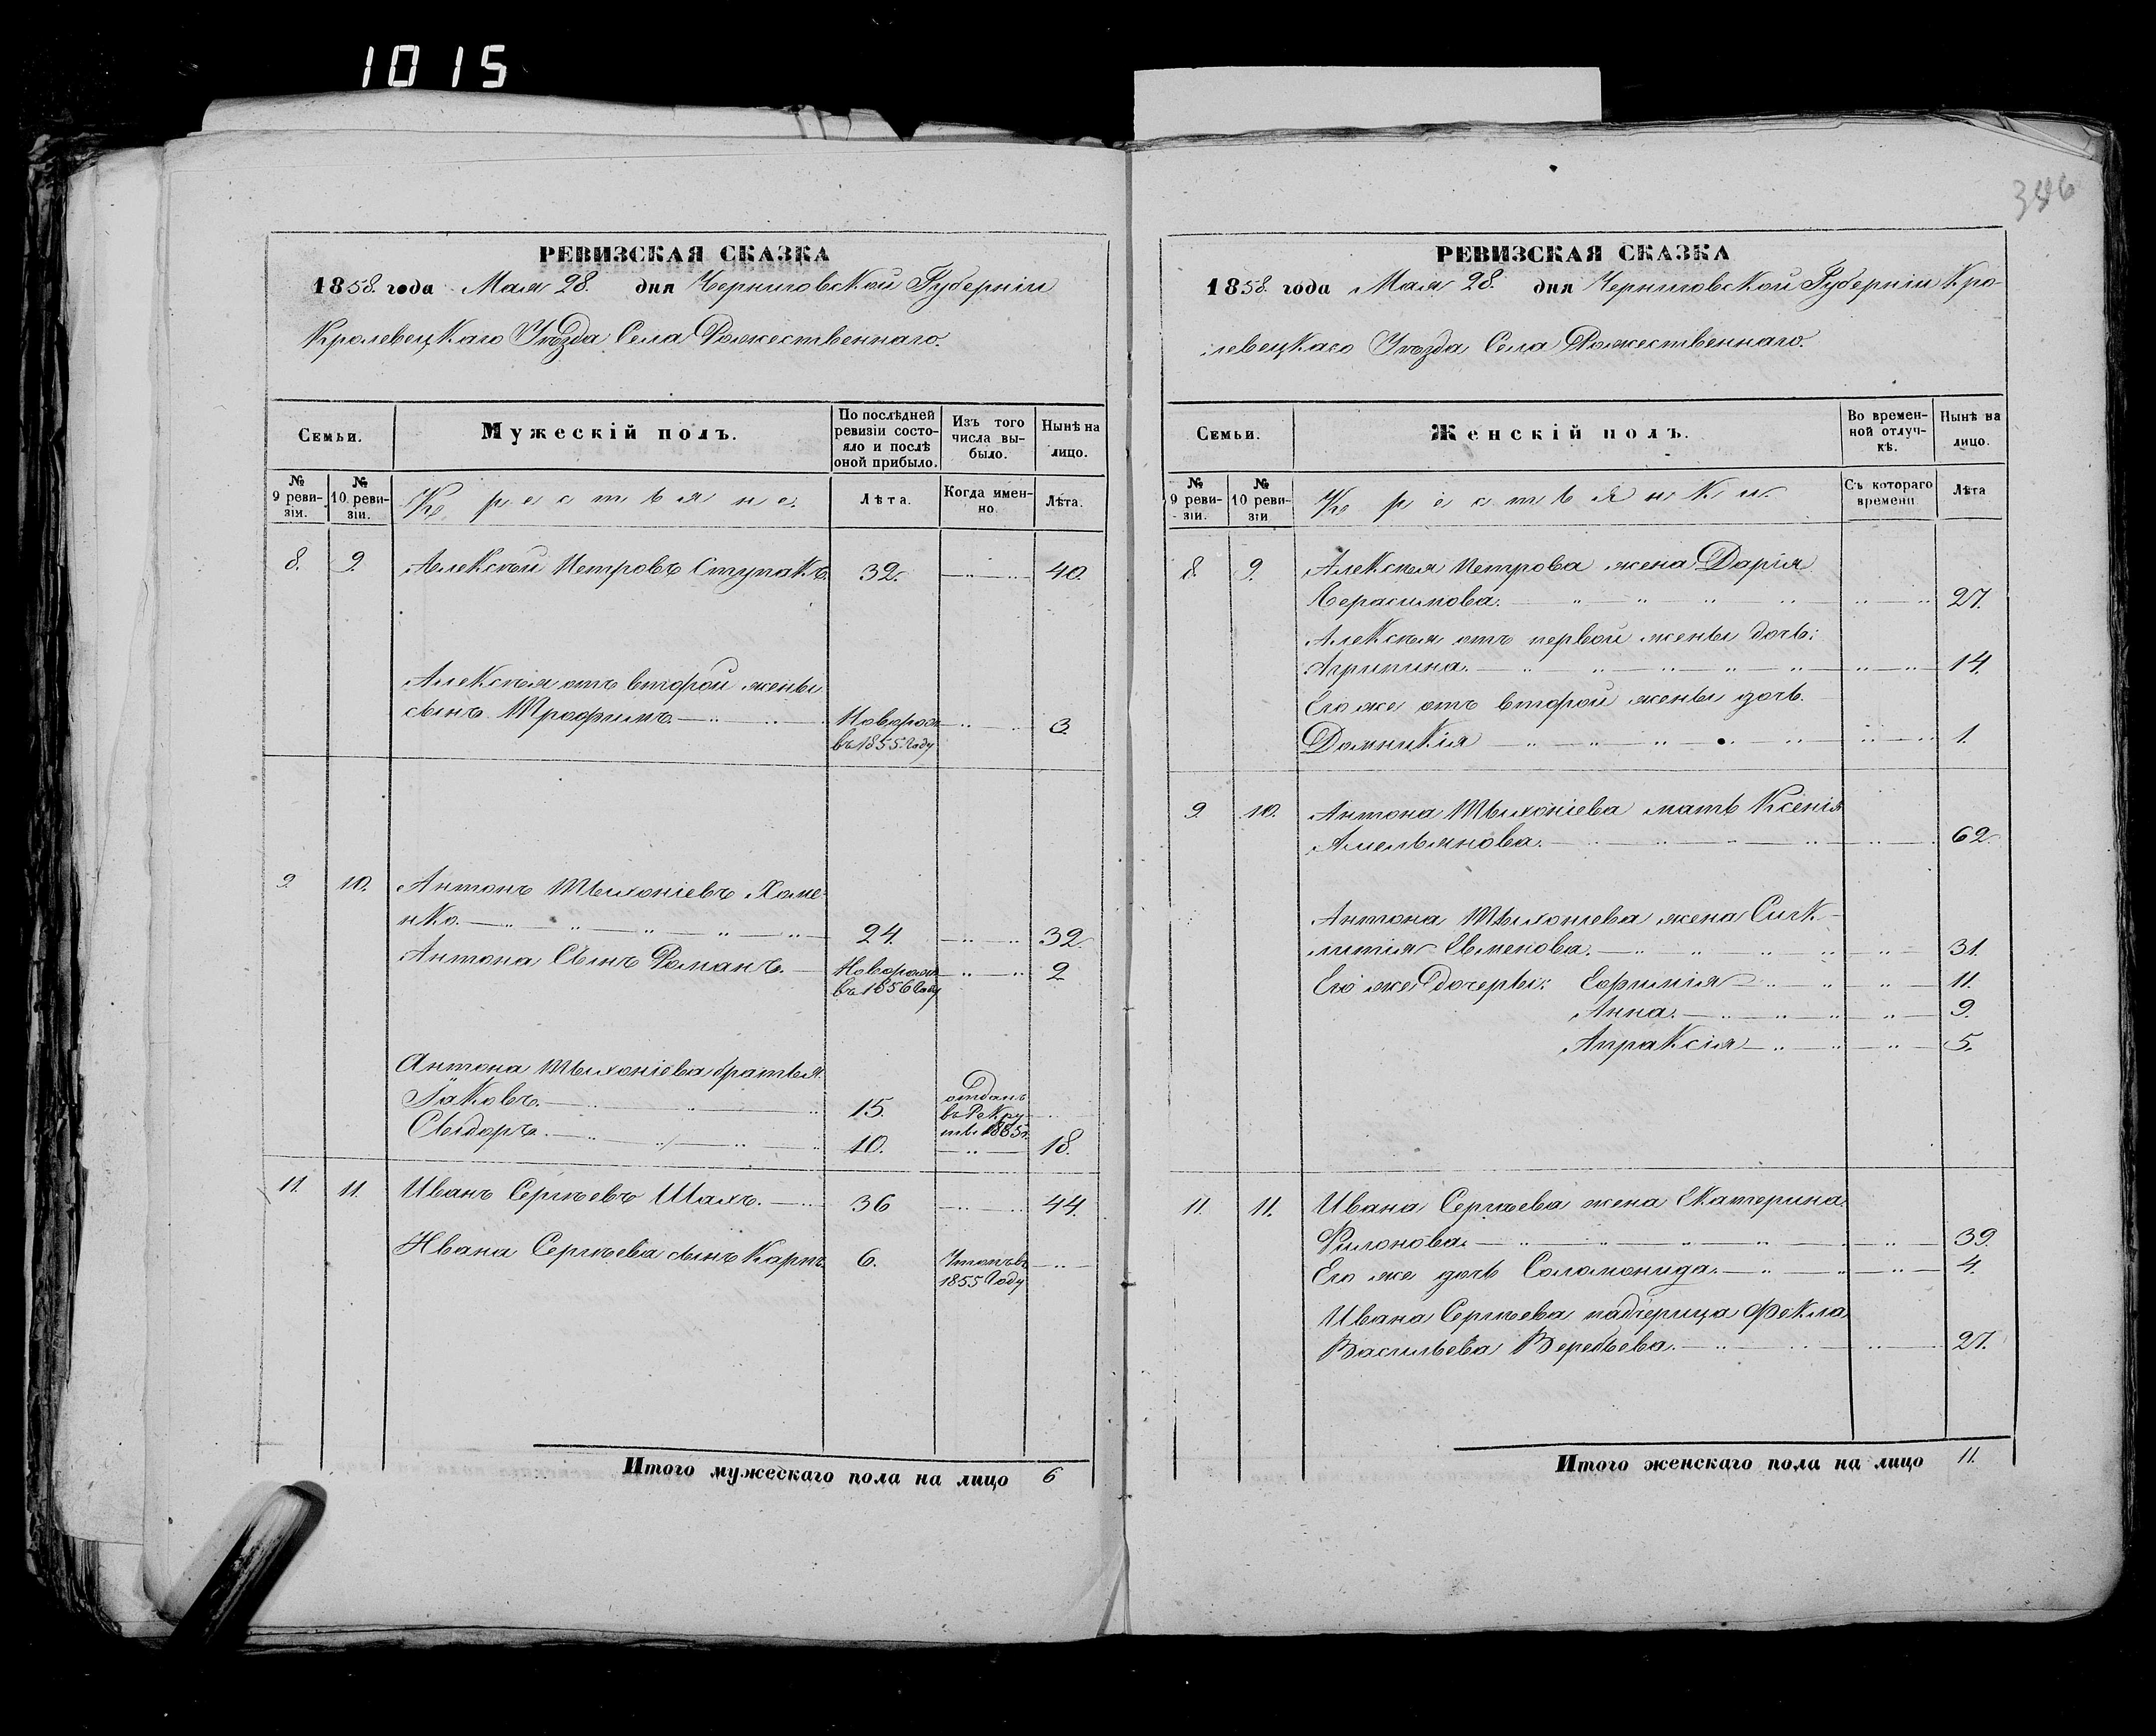 1015
346
РЕВИЗСКАЯ СКАЗКА
1858. года Мая 28. дня Черниговской Губерніи
Кролевецкаго Уѣзда Села Рожественнаго.
Семьи.
Мужескій полъ.
По послѣдней ревизіи состояло и послѣ оной прибыло.
Изъ того числа выбыло.
Нынѣ на лицо.
№ 9 ревизіи.
№ 10 ревизіи.
Крестьяне.
Лѣта.
Когда именно
Лѣта.
8. 9. Алексѣй Петровъ Ступакъ. 32. 40.
Алексѣя отъ второй жены
сынъ Трофимъ Новорож. 3.
въ 1855. Году
9. 10. Антонъ Тыхоніевъ Хоме-
нко. 24. 32.
Антона Сынъ Романъ. Новорож. 2.
въ 1856 Году
Антона Тыхоніева братья
Яковъ. 15. отданъ
въ Рекру-
ты 1855г.
Сыдоръ. 10. 18.
11. 11. Иванъ Сергѣевъ Шахъ. 36 44.
Ивана Сергѣева сынъ Карпъ 6. Утопъ въ
1855 Году
Итого мужескаго пола на лицо 6
РЕВИЗСКАЯ СКАЗКА
1858. года Мая 28. дня Черниговской Губерніи Кро-
левецкаго Уѣзда Села Рожественнаго.
Семьи.
Женскій полъ.
Во временной отлучкѣ.
Нынѣ на лицо.
№ 9 ревизіи.
№ 10 ревизіи
Крестьянки.
Съ котораго времени
Лѣта
8. 9. Алексѣя Петрова жена Дарія
Герасимова. 27.
Алексѣя отъ первой жены дочь:
Агрипина. 14.
Его же отъ второй жены дочь.
Домникія 1.
9. 10. Антона Тыхоніева мать Ксенія
Амельянова. 62.
Антона Тыхоніева жена Сигк-
литія Евменова. 31.
Его же Дочеры: Ефимія 11.
Анна. 9.
Апраксія 5.
11. 11. Ивана Сергѣева жена Екатерина
Филонова. 39.
Его же дочь Соломонида. 4.
Ивана Сергѣева падчерица Фекла
Васильева Веребьева. 27.
Итого женскаго пола на лицо 11.